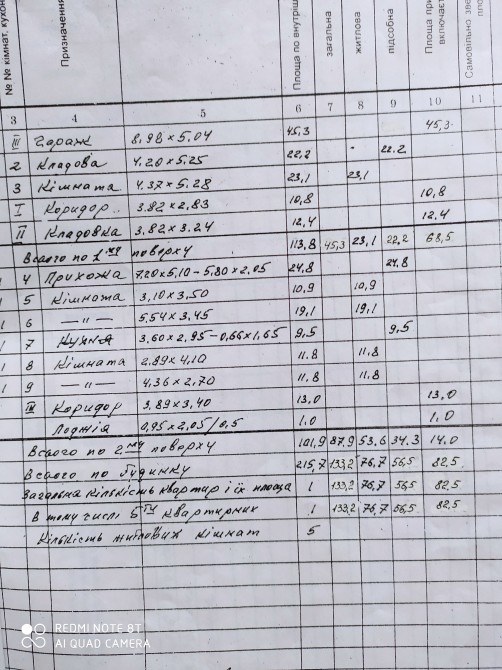 № № кімнат, кухонь
Призначення
Площа по внутріш
загальна
житлова
підсобна
Площа при
включаєт
Самовільно зве
пло
3 4 5 6 7 8 9 10 11
III гараж 8.98 × 5.04 45,3 45,3
2 Кладова 4.20 × 5.25 22,2 22.2
3 Кімната 4.37 × 5.28 23,1 23,1
I Коридор 3.82 × 2.83 10,8 10,8
II Кладовка 3.82 × 3.24 12,4 12.4
Всього по 1му поверху 113,8 45,3 23,1 22,2 68,5
4 Прихожа 7.20 × 5,10 - 5,80 × 2.05 24,8 24,8
1 5 Кімната 3,10 × 3,50 10,9 10,9
1 6 — " — 5,54 × 3,45 19,1 19,1
1 7 Кухня 3,60 × 2,95 - 0,66 × 1,65 9,5 9,5
1 8 Кімната 2.89 × 4,10 11,8 11,8
1 9 — " — 4,36 × 2,70 11,8 11,8
III Коридор 3.89 × 3,40 13,0 13,0
Лоджія 0,95 × 2,05 / 0,5 1,0 1,0
Всього по 2му поверху 101,9 87,9 53,6 34,3 14,0
Всього по будинку 215,7 133,2 76,7 56,5 82,5
Загальна кількість квартир і їх площа 1 133,2 76,7 56,5 82,5
В тому числі 5ти квартирних 1 133,2 76,7 56,5 82,5
Кількість житлових кімнат 5
REDMI NOTE 8T
AI QUAD CAMERA